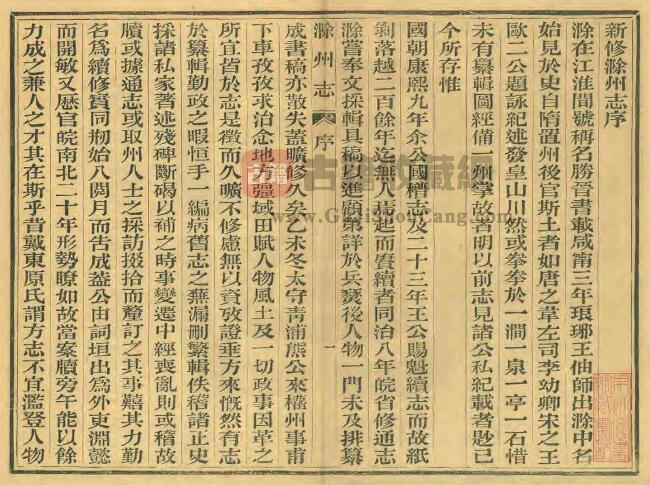 新修滁州志序
滁在江淮間號稱名勝晉書載咸甯三年琅琊王伷師出滁中名
始見於史自隋置州後官斯土者如唐之韋左司李幼卿宋之王
歐二公題詠紀述發皇山川然或拳拳於一澗一泉一亭一石惜
未有纂輯圖經備一州掌故者明以前志見諸公私紀載者尠已
今所存惟
國朝康熙九年余公國㰂志及二十三年王公賜魁續志而故紙
剝落越二百餘年迄無人焉起而賡續者同治八年皖省修通志
滁嘗奉文採輯具稿以進顧第詳於兵燹後人物一門未及排纂
滁州志 序 一
成書稿亦散失蓋曠修久矣乙未冬太守青浦熊公來權州事甫
下車孜孜求治念地方疆域田賦人物風土及一切政事因革之
所宜皆於志是徵而久曠不修慮無以資攷證垂方來慨然有志
於纂輯勤政之暇恒手一編病舊志之蕪漏刪繁輯佚稽諸正史
採諸私家著述殘碑斷碣以補之時事變遷中經喪亂則或稽故
牘或據通志或取州人士之採訪掇拾而釐訂之其事囏其力勤
名為續修實同剏始八閱月而告成蓋公由詞垣出為外吏淵懿
而開敏又歷官皖南北二十年形勢瞭如故當案牘旁午能以餘
力成之兼人之才其在斯乎昔戴東原氏謂方志不宜濫登人物